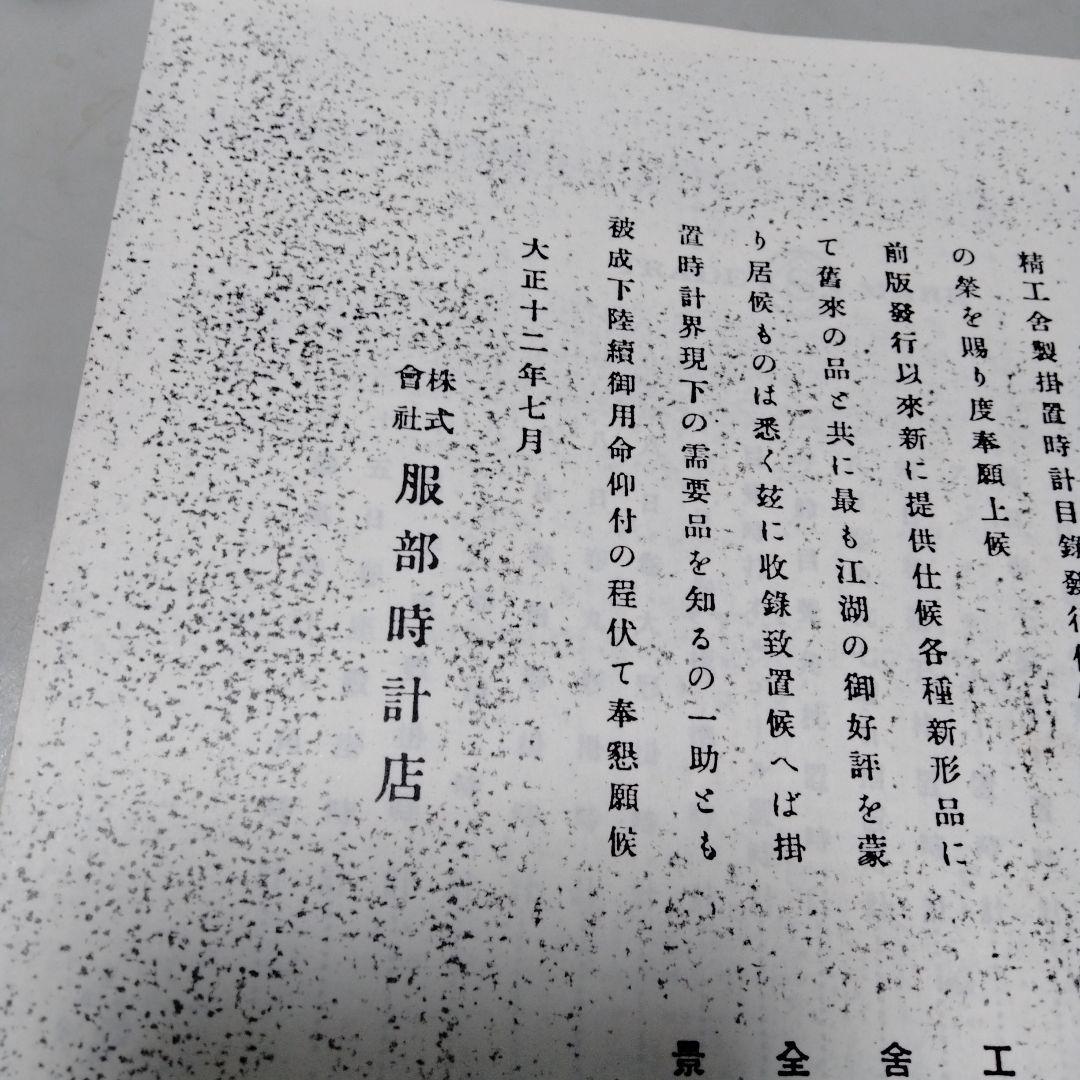 精工舍製掛置時計目錄發行
の榮を賜り度奉願上候
前版發行以來新に提供仕候各種新形品に
て舊來の品と共に最も江湖の御好評を蒙
り居候ものは悉く玆に收錄致置候へば掛
置時計界現下の需要品を知るの一助とも
被成下陸續御用命仰付の程伏て奉懇願候
大正十二年七月
株式
會社
服部時計店
景全舍工